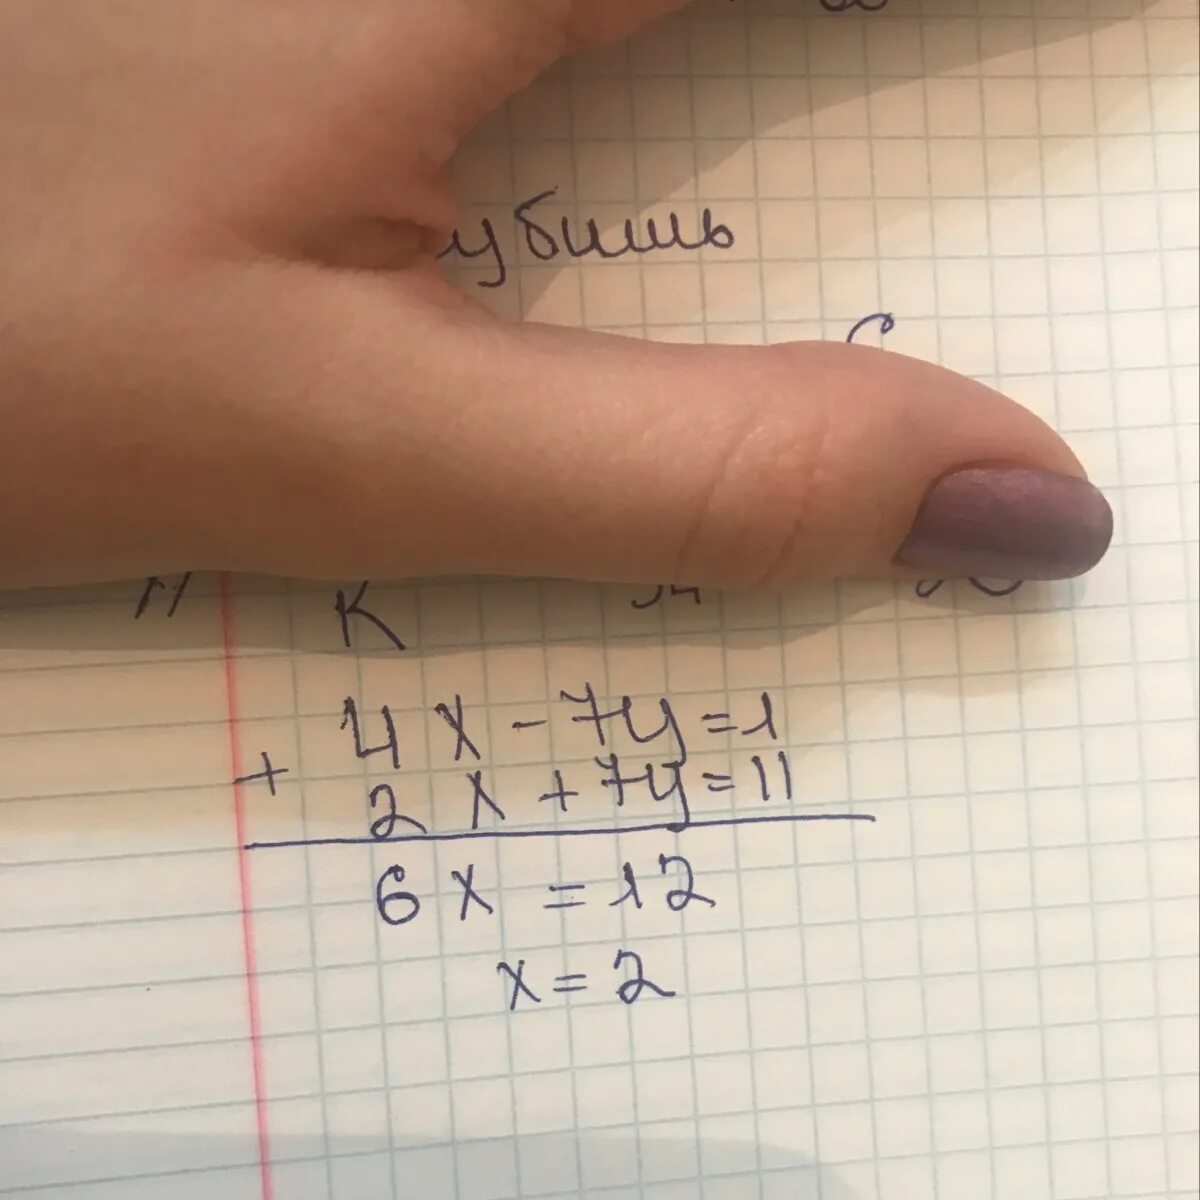 убишь
К
4x - 7y = 1
+
2x + 7y = 11
6x = 12
x = 2